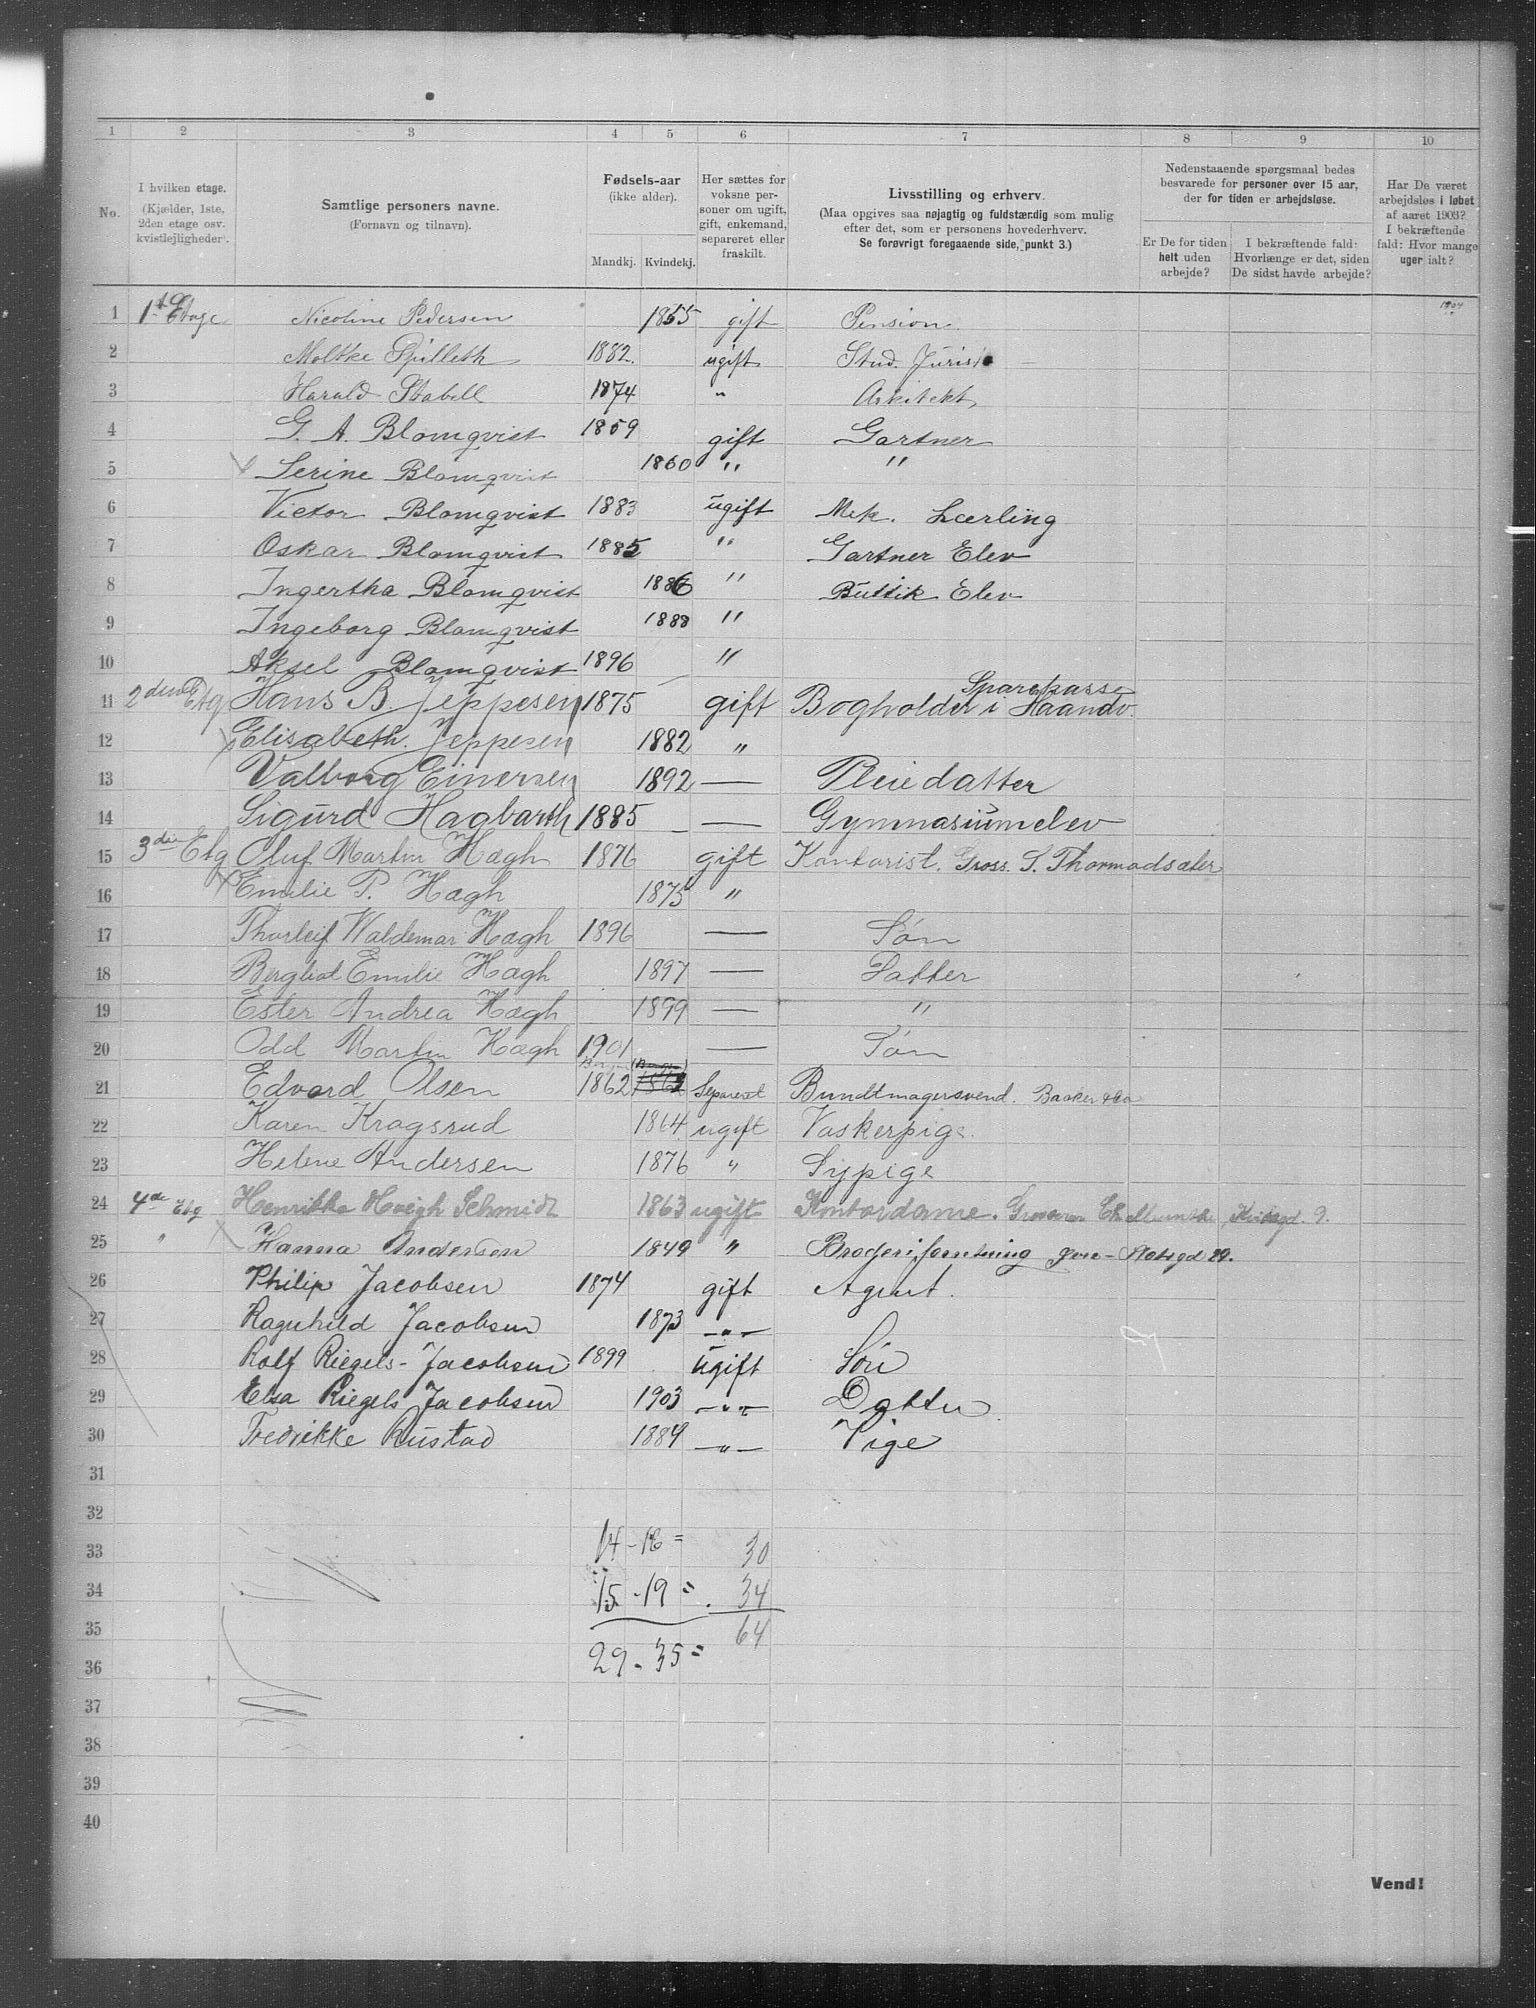 1 2 3 4 5 6 7 8 9 10
No.
I hvilken etage.
(Kjælder, 1ste,
2den etage osv.
kvistleiligheder).
Samtlige personers navne.
(Fornavn og tilnavn).
Fødsels-aar
(ikke alder).
Mandkj. Kvindekj.
Her sættes for
voksne per-
soner om ugift,
gift, enkemand,
separeret eller
fraskilt.
Livsstilling og erhverv.
(Maa opgives saa nøjagtig og fuldstærdig som mulig
efter det, som er personens hovederhverv.
Se forøvrigt foregaaende side, punkt 3.)
Nedenstaaende spørgsmaal bedes
besvarede for personer over 15 aar,
der for tiden er arbejdsløse.
Er De for tiden
helt uden
arbejde?
I bekræftende fald:
Hvorlænge er det, siden
De sidst havde arbejde?
Har De været
arbejdsløs i løbet
af aaret 1903?
I bekræftende
fald: Hvor mange
uger ialt?
1 1st Etage Nicoline Pedersen 1855 gift Pension
2 Moltke Spilleth 1882. ugift Stud. Juris
3 Harald Stabell 1874 " Arkitekt
4 G. A. Blomqvist 1859 gift Gartner
5 Serine Blomqvist 1860 " "
6 Victor Blomqvist 1883 ugift Mek. Lærling
7 Oskar Blomqvist 1885 " Gartner Elev
8 Ingertha Blomqvist 1886 " Buttik Elev
9 Ingeborg Blomqvist 1888 "
10 Aksel Blomqvist 1896 "
11 2den Etg Hans B. Jeppesen 1875 gift Bogholder i Haandv. Sparekasse
12 Elisabeth Jeppesen 1882 "
13 Valborg Einersen 1892 — Pleiedatter
14 Sigurd Hagbarth 1885 — Gymnasiumelev
15 3die Etg Oluf Martin Hægh 1876 gift Kontorist. Gross. S. Thormodsæter
16 Emilie P. Hægh 1875 "
17 Thorleif Waldemar Hægh 1896 — Søn
18 Bergliot Emilie Hægh 1897 — Datter
19 Ester Andrea Hægh 1899 — "
20 Odd Martin Hægh 1901 — Søn
21 Edvard Olsen 1862 Separeret Bundtmagersvend. Backer & Co
22 Karen Kragsrud 1864 ugift Vaskerpige.
23 Helene Andersen 1876 " Sypige
24 4de Etg Henrikka Høegh Schmidt 1863 ugift Kontordame. 9.
25 " Hanna Andersen 1849 " Broderiforretning Slotsgd 29.
26 Philip Jacobsen 1874 gift Agent.
27 Ragnhild Jacobsen 1873 —"—
28 Rolf Riegels-Jacobsen 1899 ugift Søn
29 Elsa Riegels Jacobsen 1903 —"— Datter
30 Fredrikke Rustad 1884 —"— Pige
31
32
33 14 - 16 = 30
34 15 - 19 = 34
35 64
36 29 - 35 =
37
38
39
40
Vend!